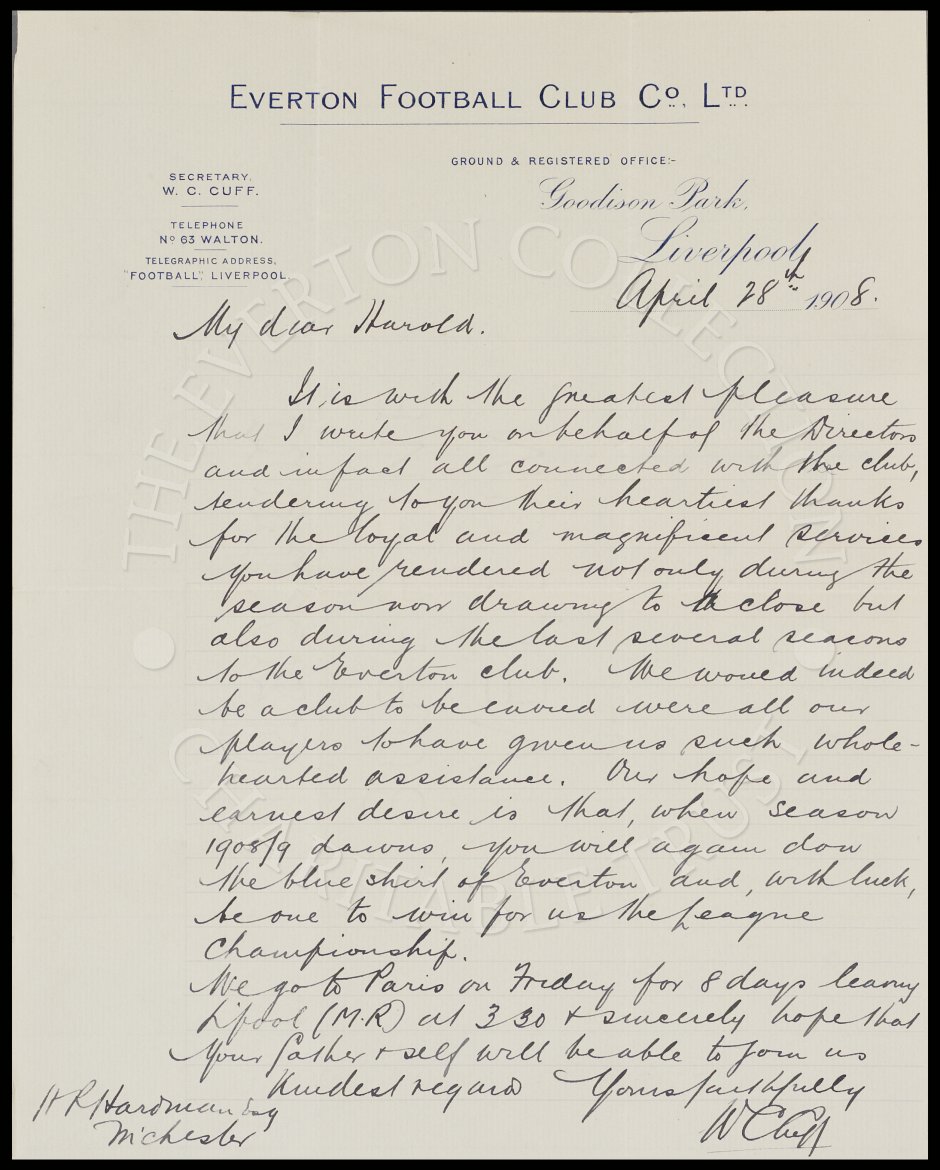 EVERTON FOOTBALL CLUB CO., LTD.
GROUND & REGISTERED OFFICE:-
SECRETARY,
W. C. CUFF.
Goodison Park,
TELEPHONE
No 63 WALTON.
Liverpool,
TELEGRAPHIC ADDRESS,
"FOOTBALL", LIVERPOOL.
April 28th 1908.
My dear Harold.
It is with the greatest pleasure
that I write you on behalf of the Directors
and in fact all connected with the club,
tendering to you their heartiest thanks
for the loyal and magnificent services
you have rendered not only during the
season now drawing to a close but
also during the last several seasons
to the Everton club. We would indeed
be a club to be envied were all our
players to have given us such whole-
hearted assistance. Our hope and
earnest desire is that, when season
1908/9 dawns, you will again don
the blue shirt of Everton and, with luck,
be one to win for us the League
Championship.
We go to Paris on Friday for 8 days leaving
L'pool (M.R) at 3 30 & sincerely hope that
your father & self will be able to join us
Kindest regards Yours faithfully
H R Hardman Esq
W C Cuff
M'chester
THE EVERTON COLLECTION
CHARITABLE TRUST